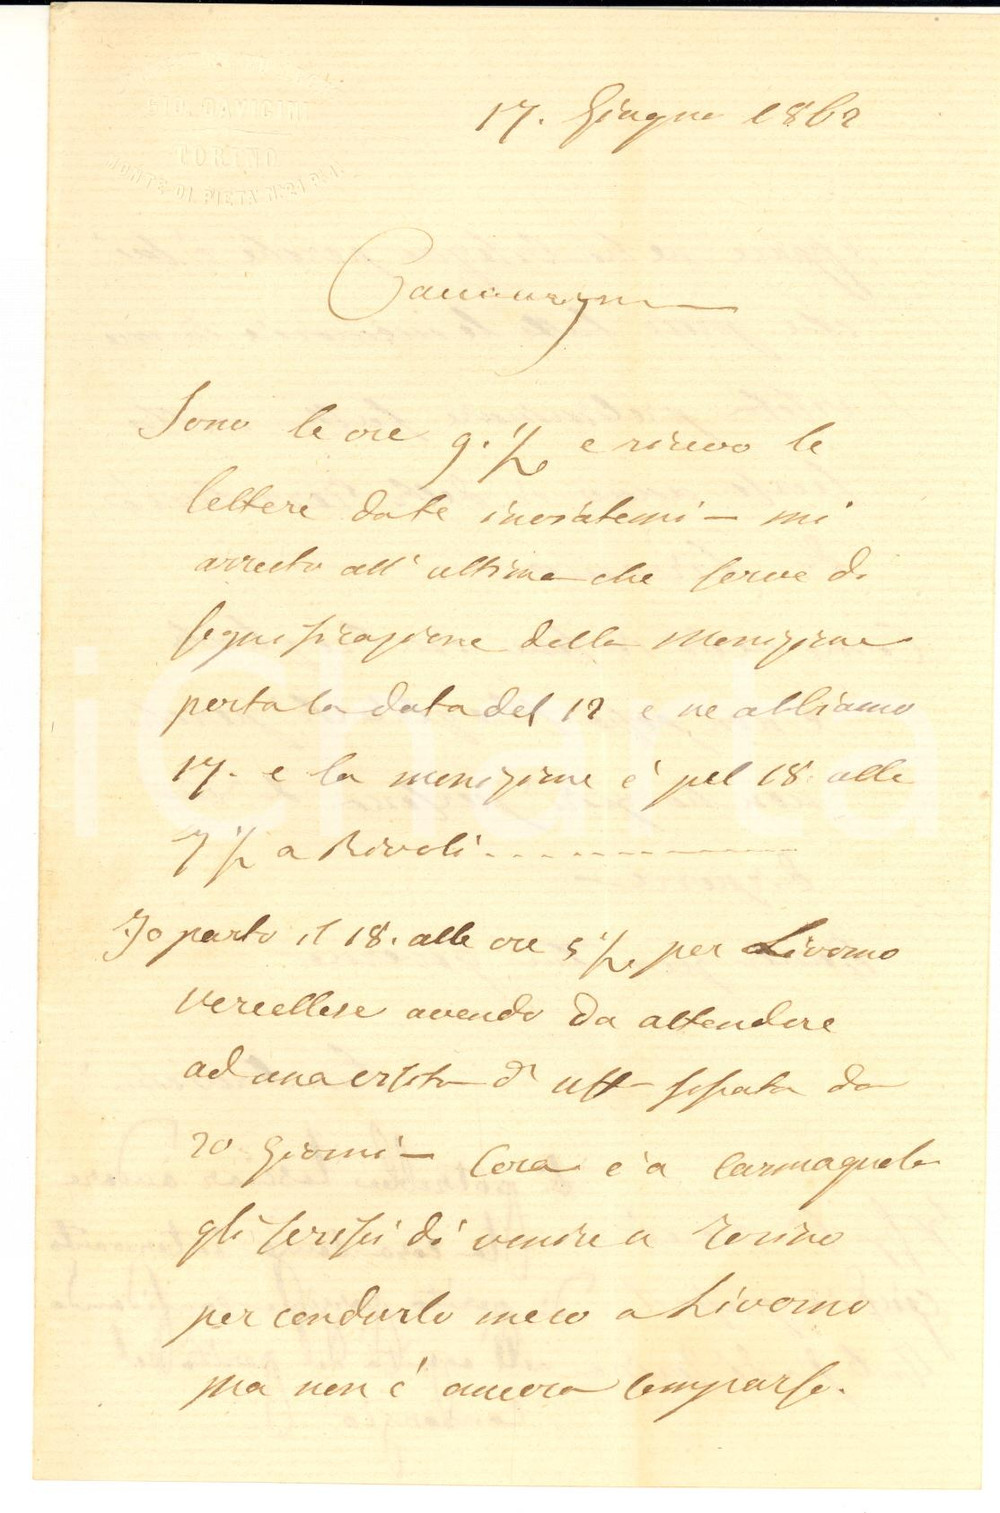 GIO. DAVICINI
TORINO
MONTE DI PIETA N. 21 P. 1.
17. Giugno 1862
Sono le ore 9. 1/2 e ricevo le
lettere date inviatemi — mi
arresto all' ultima che serve di
significazione della Menzione
porta la data del 12 e ne abbiamo
17. e la menzione è pel 18. alle
7 1/2 a Rivoli. - - - - - - - -
Io parto il 18. alle ore 5 1/2 per Livorno
Vercellese avendo da attendere
ad una visita d' uff- fissata da
20 Giorni — Cora è a Carmagnola
gli scrissi di venire a Torino
per condurlo meco a Livorno
ma non è ancora comparso.
iCharta